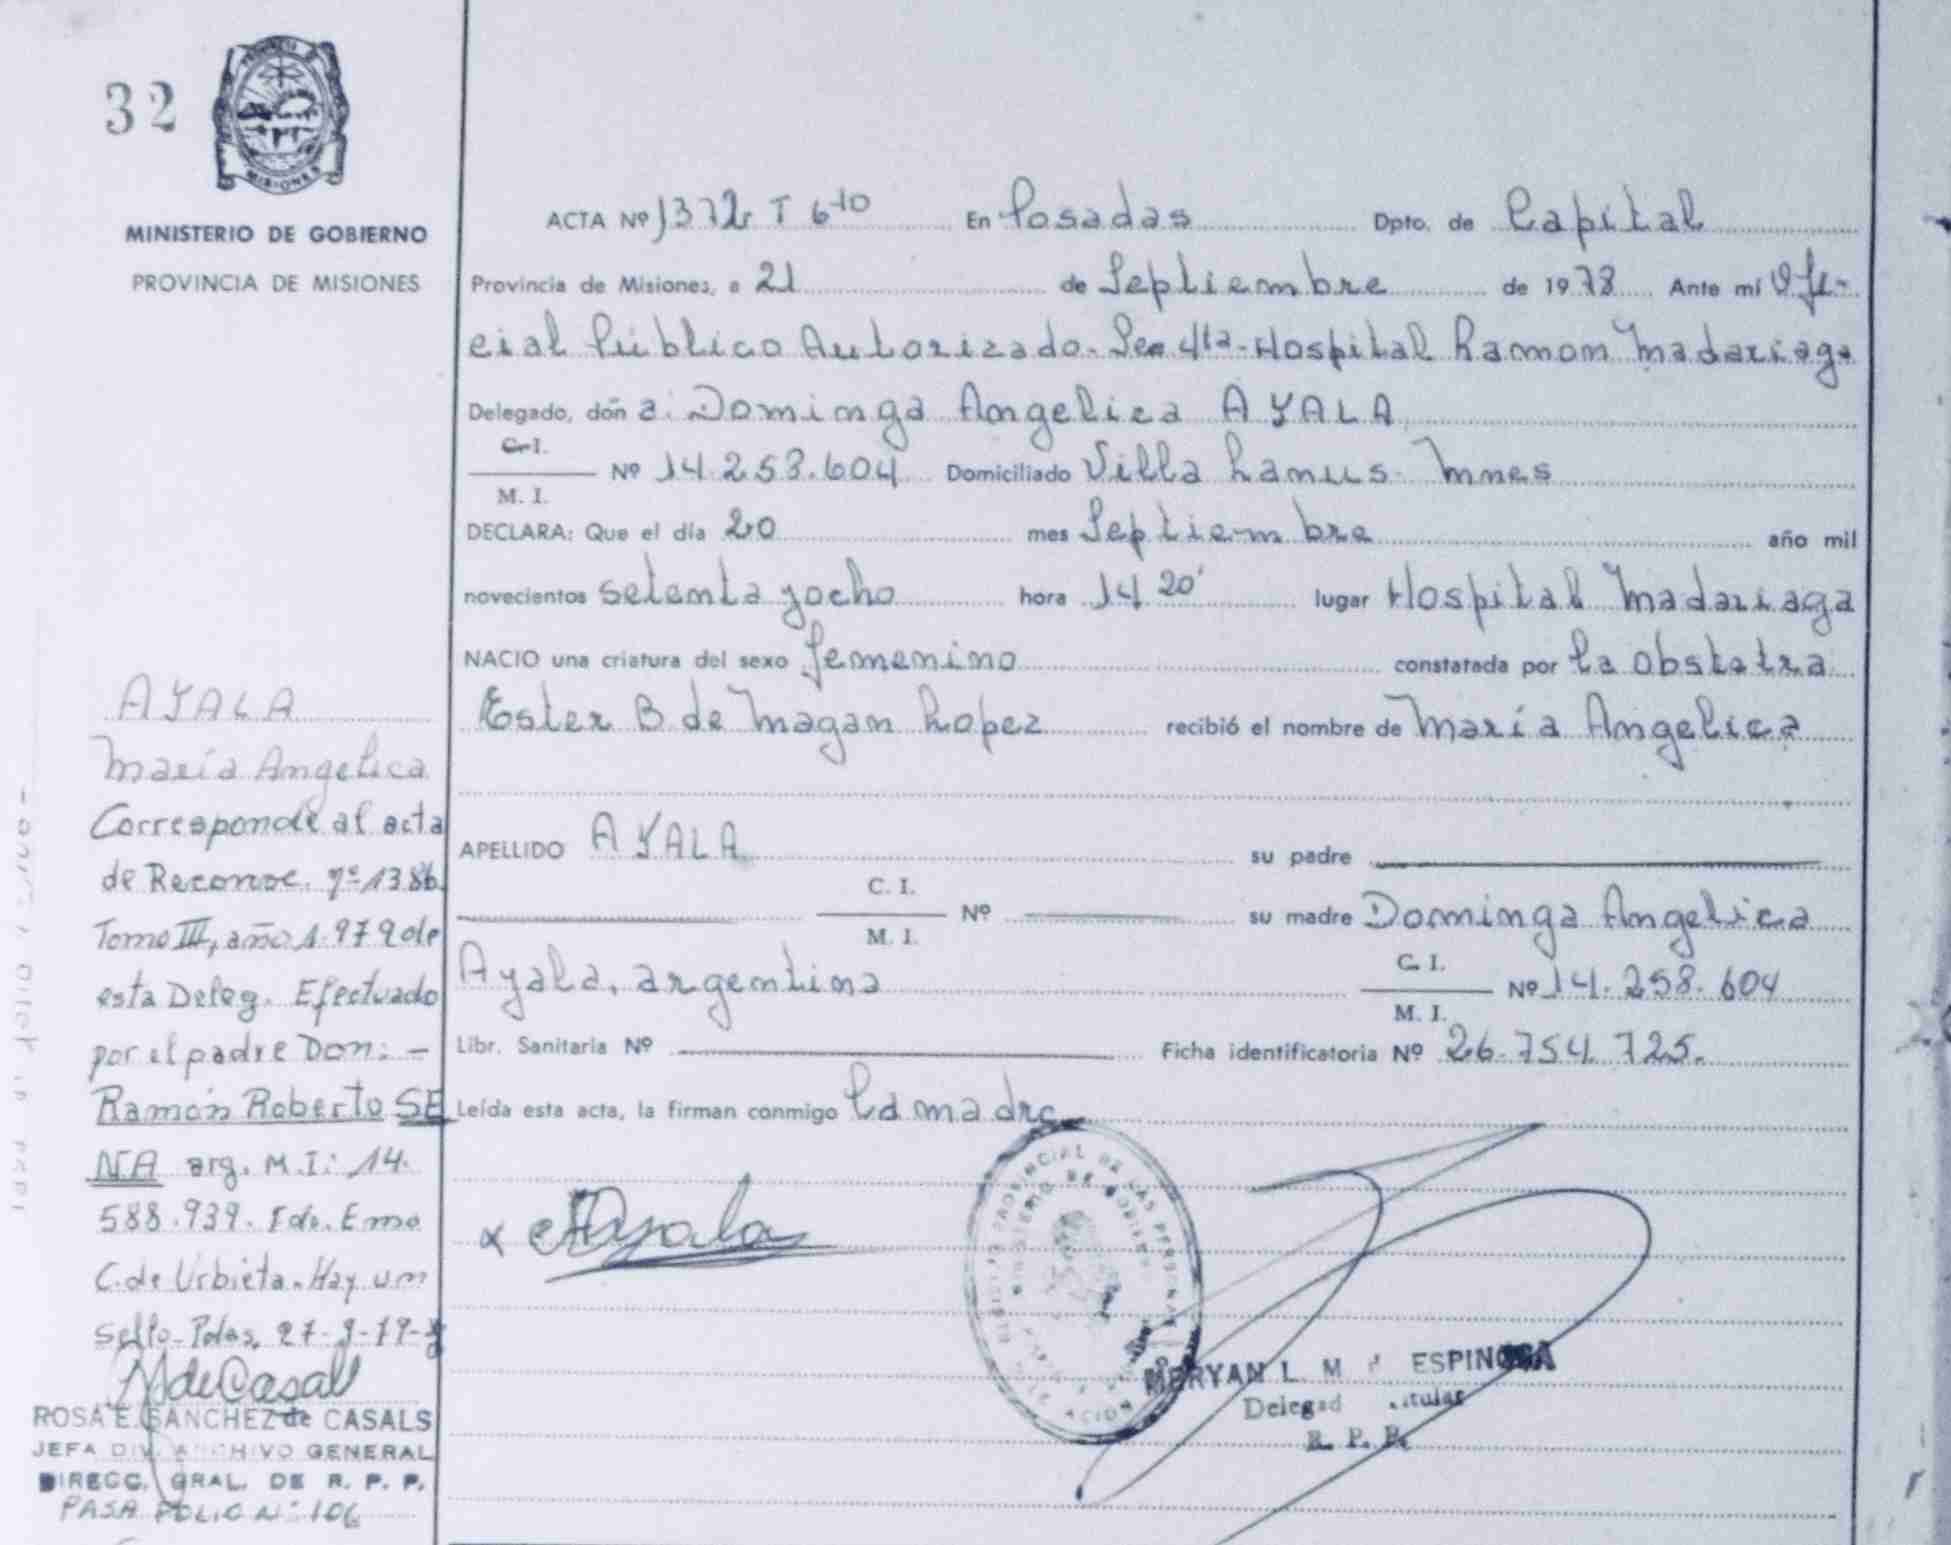 32
MISIONES
MINISTERIO DE GOBIERNO
PROVINCIA DE MISIONES
ACTA Nº 1372 T 6to En Posadas Dpto. de Capital
Provincia de Misiones, a 21 de Septiembre de 1978 Ante mí Ofi-
cial Público Autorizado. Sec 4ta-Hospital Ramon Madariaga
Delegado, dón a: Dominga Angelica AYALA
C.I.
M. I. Nº 14.253.604 Domiciliado Villa Lanus- Mnes
DECLARA: Que el día 20 mes Septiembre año mil
novecientos setenta y ocho hora 14 20' lugar Hospital Madariaga
NACIO una criatura del sexo femenino constatada por la obstetra
Ester B de Magan Lopez recibió el nombre de María Angelica
APELLIDO AYALA su padre
C. I.
M. I. Nº su madre Dominga Angelica
Ayala, argentina C. I.
M. I. Nº 14.258.604
Libr. Sanitaria Nº Ficha identificatoria Nº 26.754.725.
Leída esta acta, la firman conmigo la madre
x Ayala
MERYAN L. M ESPINOSA
Delegad itular
R. P. P.
AYALA
María Angelica
Corresponde al acta
de Reconoc. nº 1386
Tomo III, año 1.979 de
esta Deleg. Efectuado
por el padre Don: -
Ramón Roberto SE
NA arg. M.I: 14.
588.939. Fdo. Ema
C. de Urbieta. Hay un
Sello- Pdas, 27-9-79-
R S de Casals
ROSA E. SANCHEZ de CASALS
JEFA DIV. ARCHIVO GENERAL
DIRECC. GRAL. DE R. P. P.
PASA FOLIO Nº 106